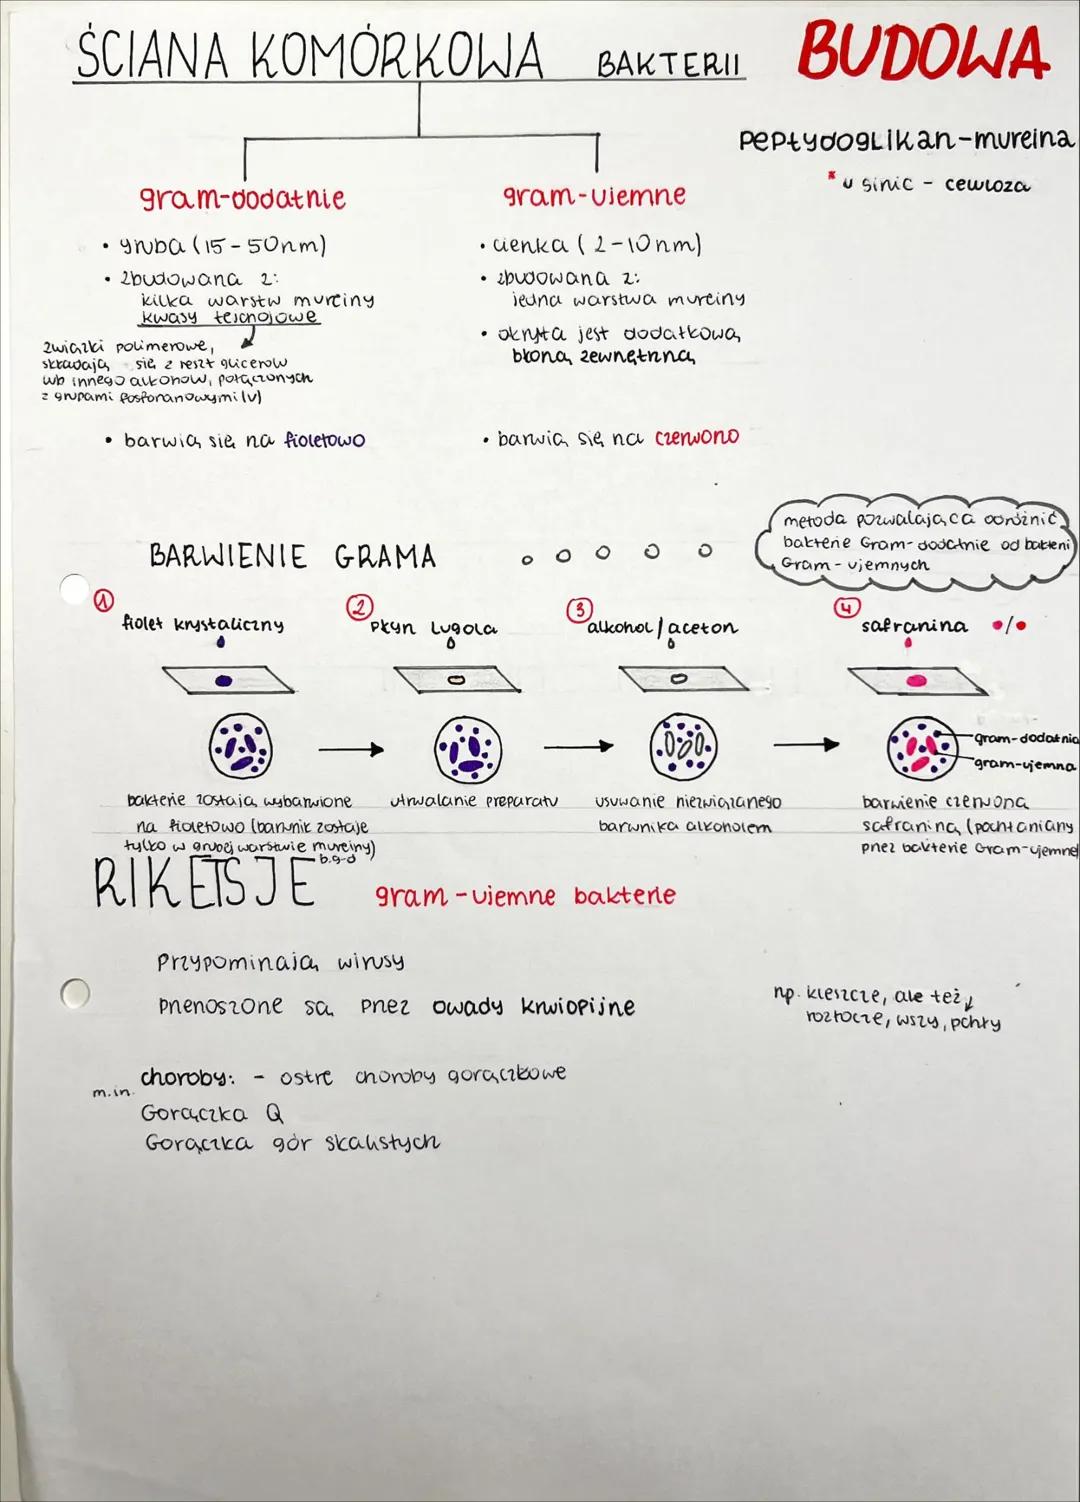 ŚCIANA KOMÓRKOWA BAKTERII BUDOWA
peptydoglikan-mureina
* u sinic - celuloza
gram-dodatnie
• gruba (15-50nm)
• zbudowana z:
kilka warstw mureiny
kwasy tejchojowe
związki polimerowe,
składają się z reszt glicerolu
lub innego alkoholu, połączonych
z grupami fosforanowymi (V)
• barwią się na fioletowo
gram-ujemne
• cienka (2-10nm)
• zbudowana z:
jedna warstwa mureiny
• okryta jest dodatkową
błoną zewnętrzną
• barwią się na czerwono
BARWIENIE GRAMA
metoda pozwalająca odróżnić
bakterie Gram-dodatnie od bakterii
Gram-ujemnych
1 fiolet krystaliczny
2 Płyn Lugola
3 alkohol/aceton
4 safranina /
gram-dodatnia
gram-ujemna
bakterie zostają wybarwione
na fioletowo (barwnik zostaje
tylko w grubej warstwie mureiny)
b.g-d
utrwalanie preparatu
usuwanie niezwiązanego
barwnika alkoholem
barwienie czerwoną
safraniną (pochłaniany
przez bakterie Gram-ujemne
RIKETSJE gram-ujemne bakterie
Przypominają wirusy
przenoszone są przez owady krwiopijne
np. kleszcze, ale też
roztocze, wszy, pchły
choroby: - ostre choroby gorączkowe
m.in.
Gorączka Q
Gorączka gór skalistych